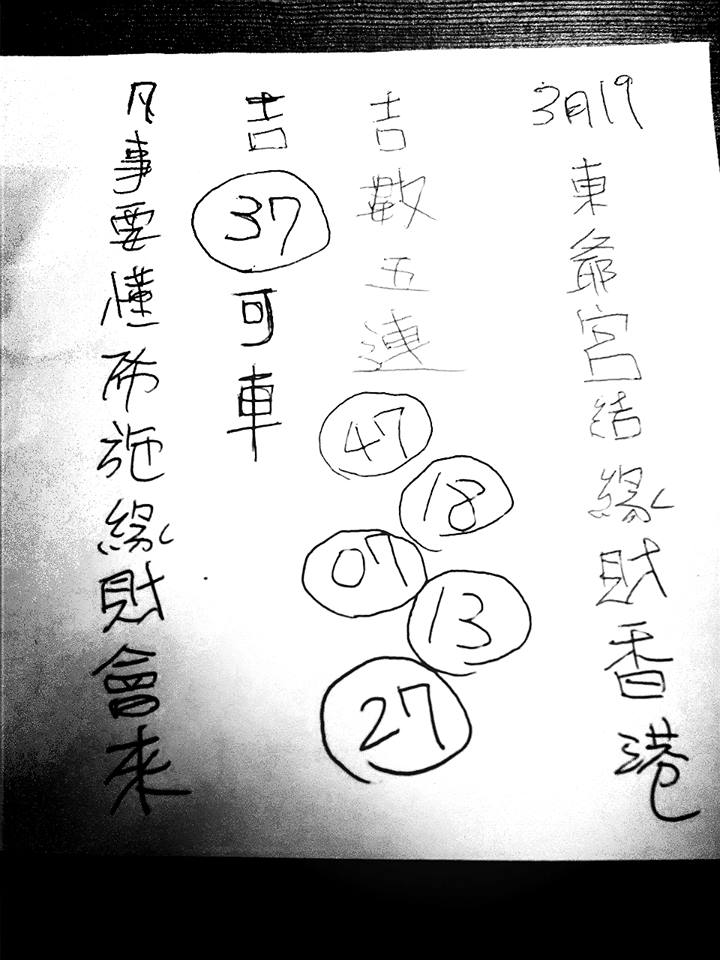 3月19東爺宮結緣財香港
吉數五連
47
18
07
13
27
吉37可車
凡事要懂布施緣財會來